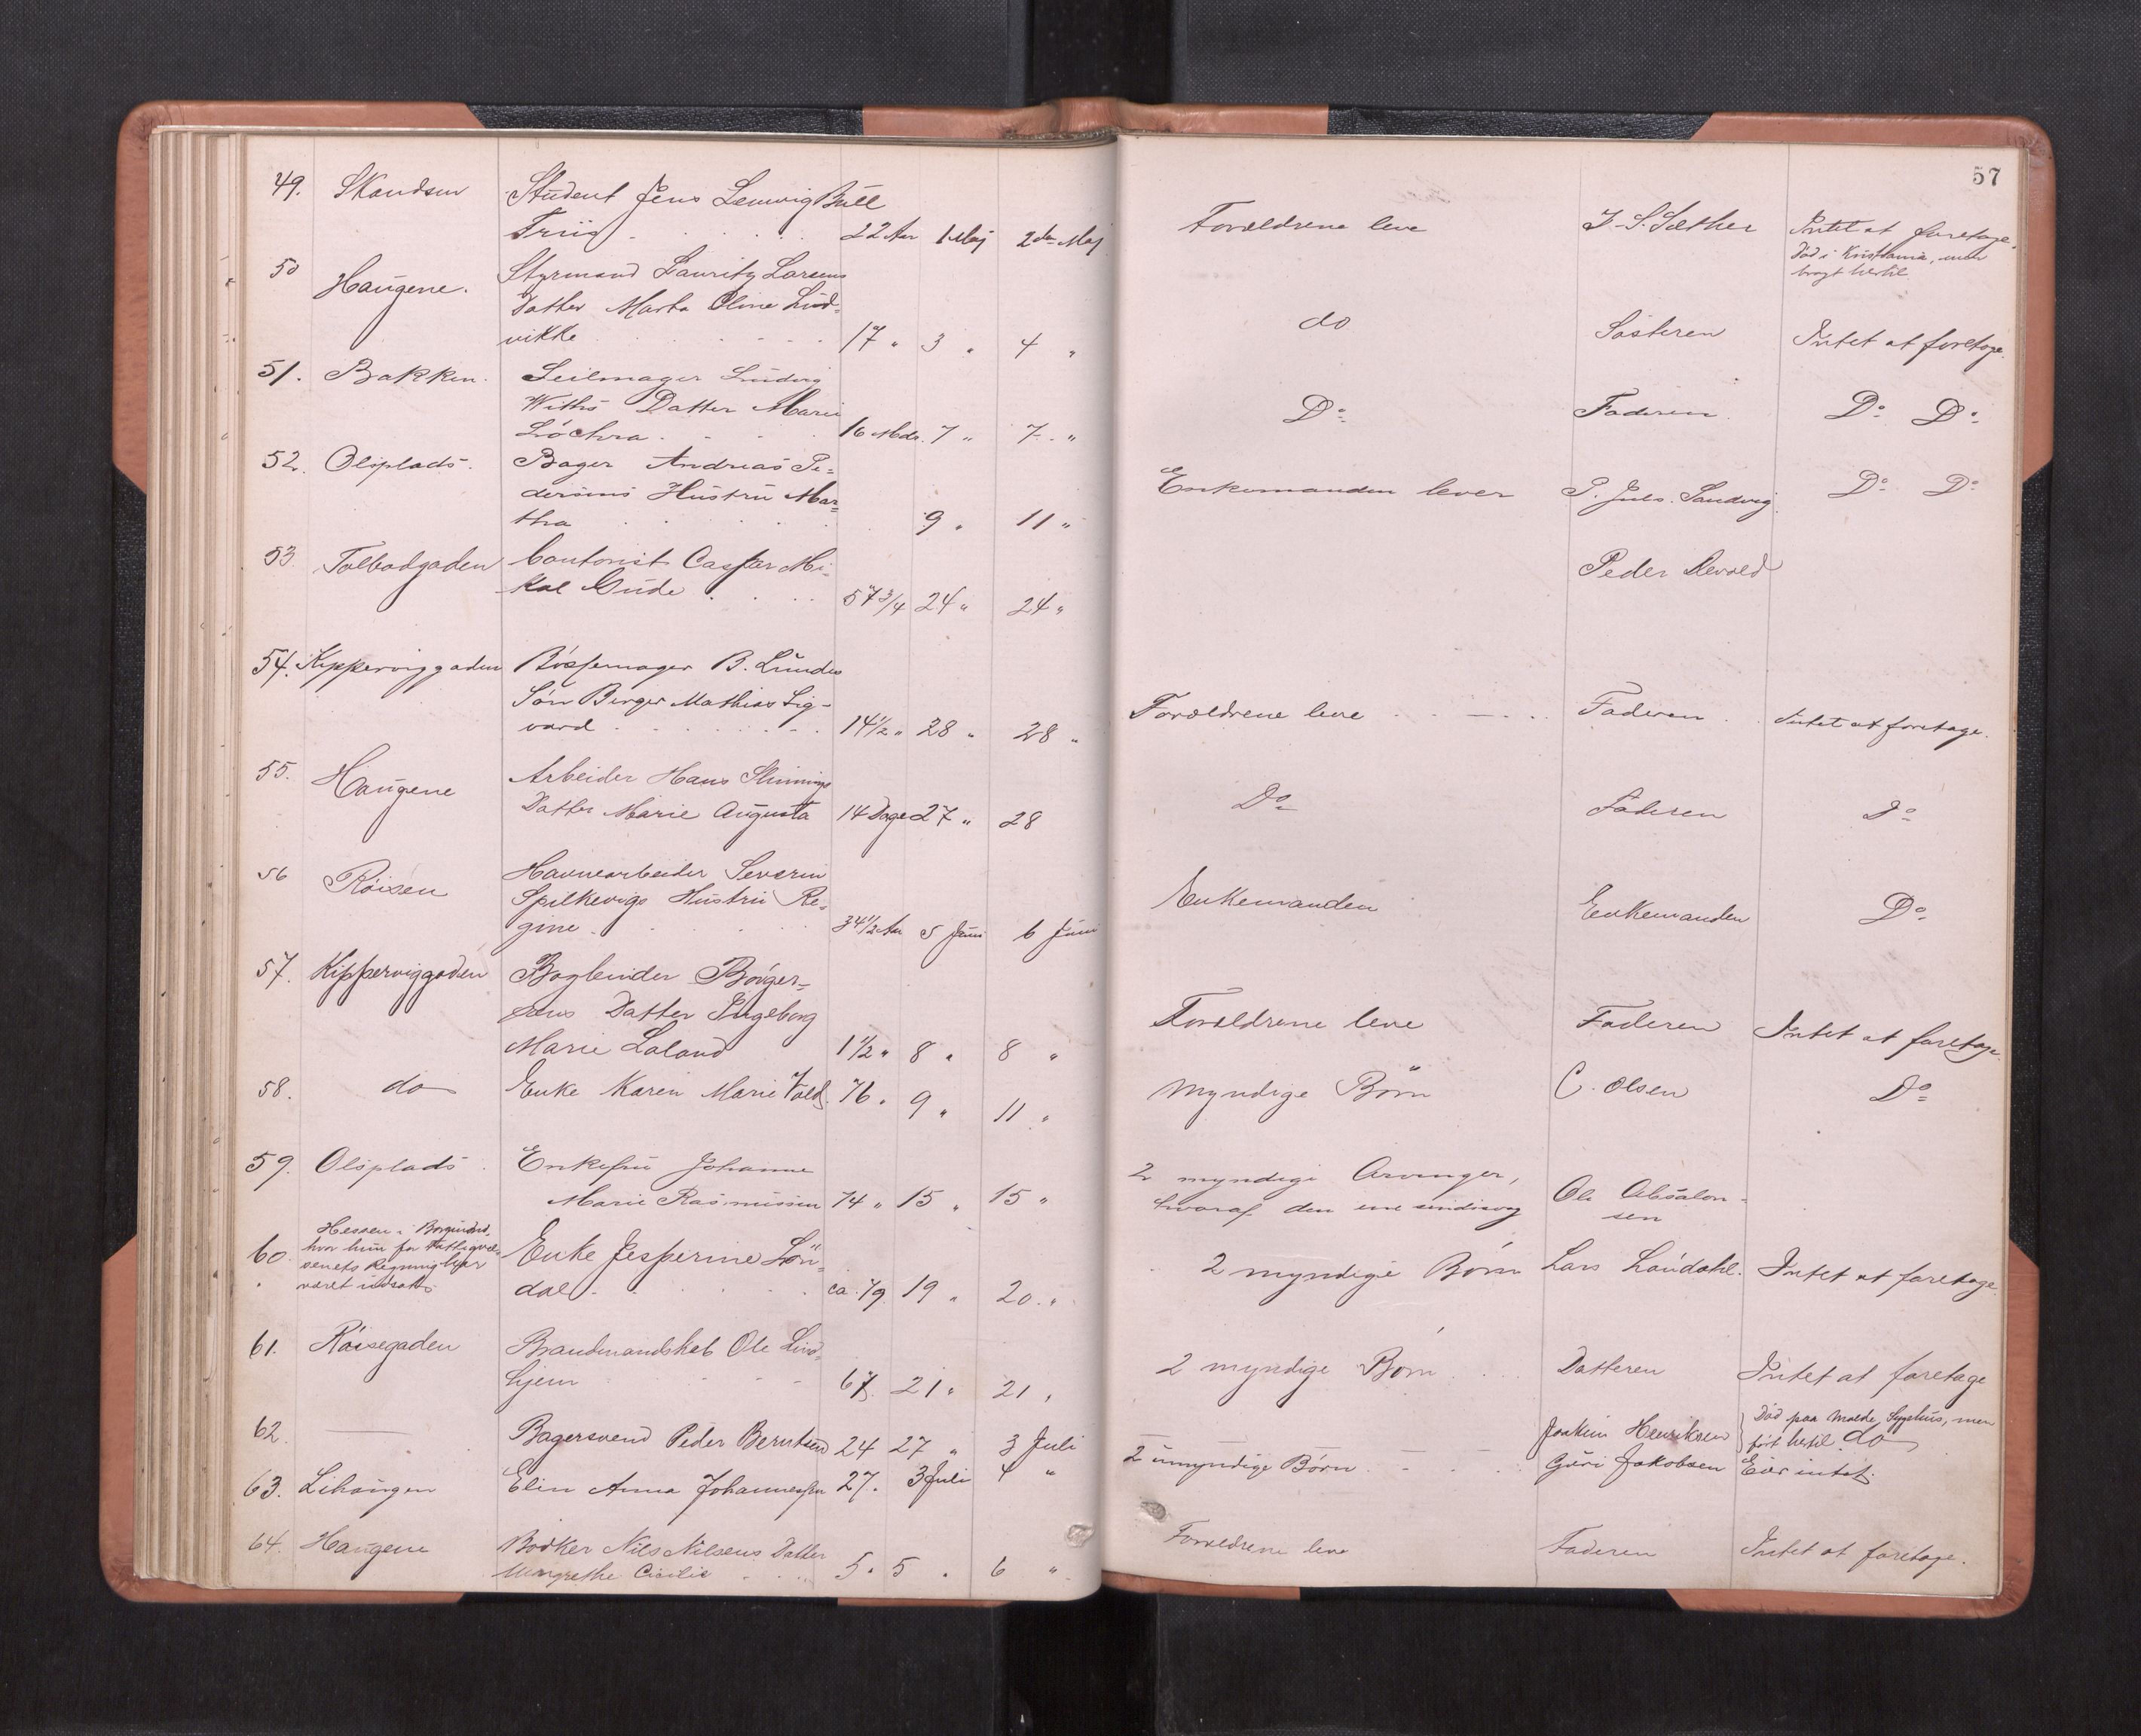 57
49. Skandsen Student Jens Lauwig Bull
Friis 22 Aar 1 Maj 2den Maj Forældrene leve J. S. Sæther Intet at foretage.
Død i Kristiania, men
bragt hertil
50 Haugene. Styrmand Lauritz Larsens
Datter Marta Oline Lud-
vikke 17 " 3 " 4 " do Søsteren Intet at foretage.
51. Bakken. Seilmager Ludvig
Withs Datter Marie
16 Mdr. 7 " 7 " Do Faderen Do Do
52. Olsplads. Bager Andreas Pe-
dersens Hustru Mar-
tha 9 " 11 " Enkemanden lever P. Juls. Sandvig Do Do
53 Tolbodgaden Contorist Casper Mi-
kal Gude 57 3/4 24 " 24 " Peder Devold
54. Kipperviggaden Bøssemager B. Lundes
Søn Birger Mathias Sig-
vard 14 1/2 " 28 " 28 " Forældrene leve Faderen Intet at foretage.
55. Haugene Arbeider Hans Slinnings
Datter Marie Augusta 14 Dage 27 " 28 Do Faderen Do
56 Røisen Havnearbeider Severin
Spilkevigs Hustru Re-
gine 34 1/2 Aar 5 Juni 6 Juni Enkemanden Enkemanden Do
57. Kipperviggaden Bogbinder Børger-
sens Datter Ingeborg
Marie Laland 1 1/2 " 8 " 8 " Forældrene leve Faderen Intet at foretage.
58. do Enke Karen Marie Vold 76 " 9 " 11 " Myndige Børn C. Olsen Do
59. Olsplads Enkefru Johanne
Marie Rasmussen 74 " 15 " 15 " 2 myndige Arvinger,
hvoraf den ene sindssvag Ole Absalon-
sen
60 Hessen i Borgund,
hvor hun for Fattigvæ-
senets Regning har
været indsat. Enke Jesperine Løn-
dal ca. 79 19 " 20 " 2 myndige Børn Lars Løndahl. Intet at foretage.
61. Røisegaden Brandmandskab Ole Lind-
hjem 67 21 " 21 " 2 myndige Børn Datteren Intet at foretage
62. Bagersvend Peder Berntsen 24 27 " 3 Juli Joakim Henriksen Død paa Molde Sygehus, men
ført hertil. do
63. Lihaugen Elin Anna Johannessen 27. 3 Juli 4 " 2 umyndige Børn Guri Jakobsen Eier intet.
64. Haugene Bødker Nils Nilsens Datter
Margrethe Cicilie 5 " 5 " 6 " Forældrene leve Faderen Intet at foretage.